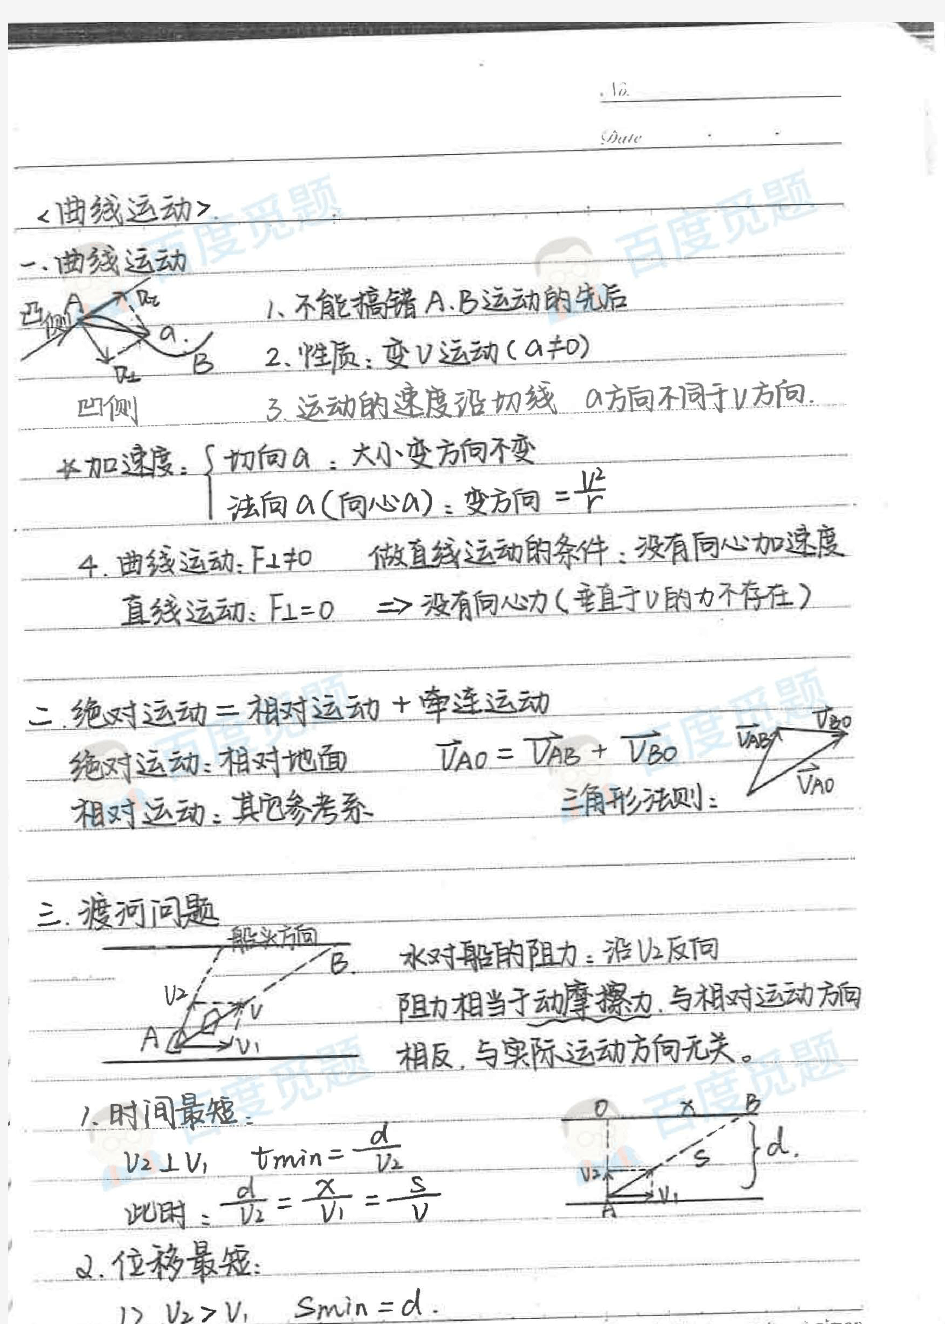 No.
Date
<曲线运动>.
一、曲线运动
凹侧 A v2 a. v1 B
凹侧
1、不能搞错A.B运动的先后
2、性质：变V运动(a≠0)
3 运动的速度沿切线 a方向不同于V方向.
*加速度：{ 切向a：大小变方向不变
法向a(向心a)：变方向 = V²/r
4. 曲线运动：F⊥≠0 做直线运动的条件：没有向心加速度
直线运动：F⊥=0 => 没有向心力(垂直于V的力不存在)
二.绝对运动=相对运动+牵连运动
绝对运动：相对地面 V⃗AO = V⃗AB + V⃗BO
V⃗AB V⃗BO V⃗AO
相对运动：其它参考系 三角形法则：
三.渡河问题
船头方向
B.
V2 V
A V1
水对船的阻力：沿V2反向
阻力相当于动摩擦力.与相对运动方向
相反，与实际运动方向无关。
1、时间最短：
V2⊥V1 tmin=d/V2
此时：d/V2 = x/V1 = S/V
O x B
S d.
V2 V1
A
2.位移最短：
1> V2>V1 Smin=d.
百度觅题
百度觅题
百度觅题
百度觅题
百度觅题
百度觅题